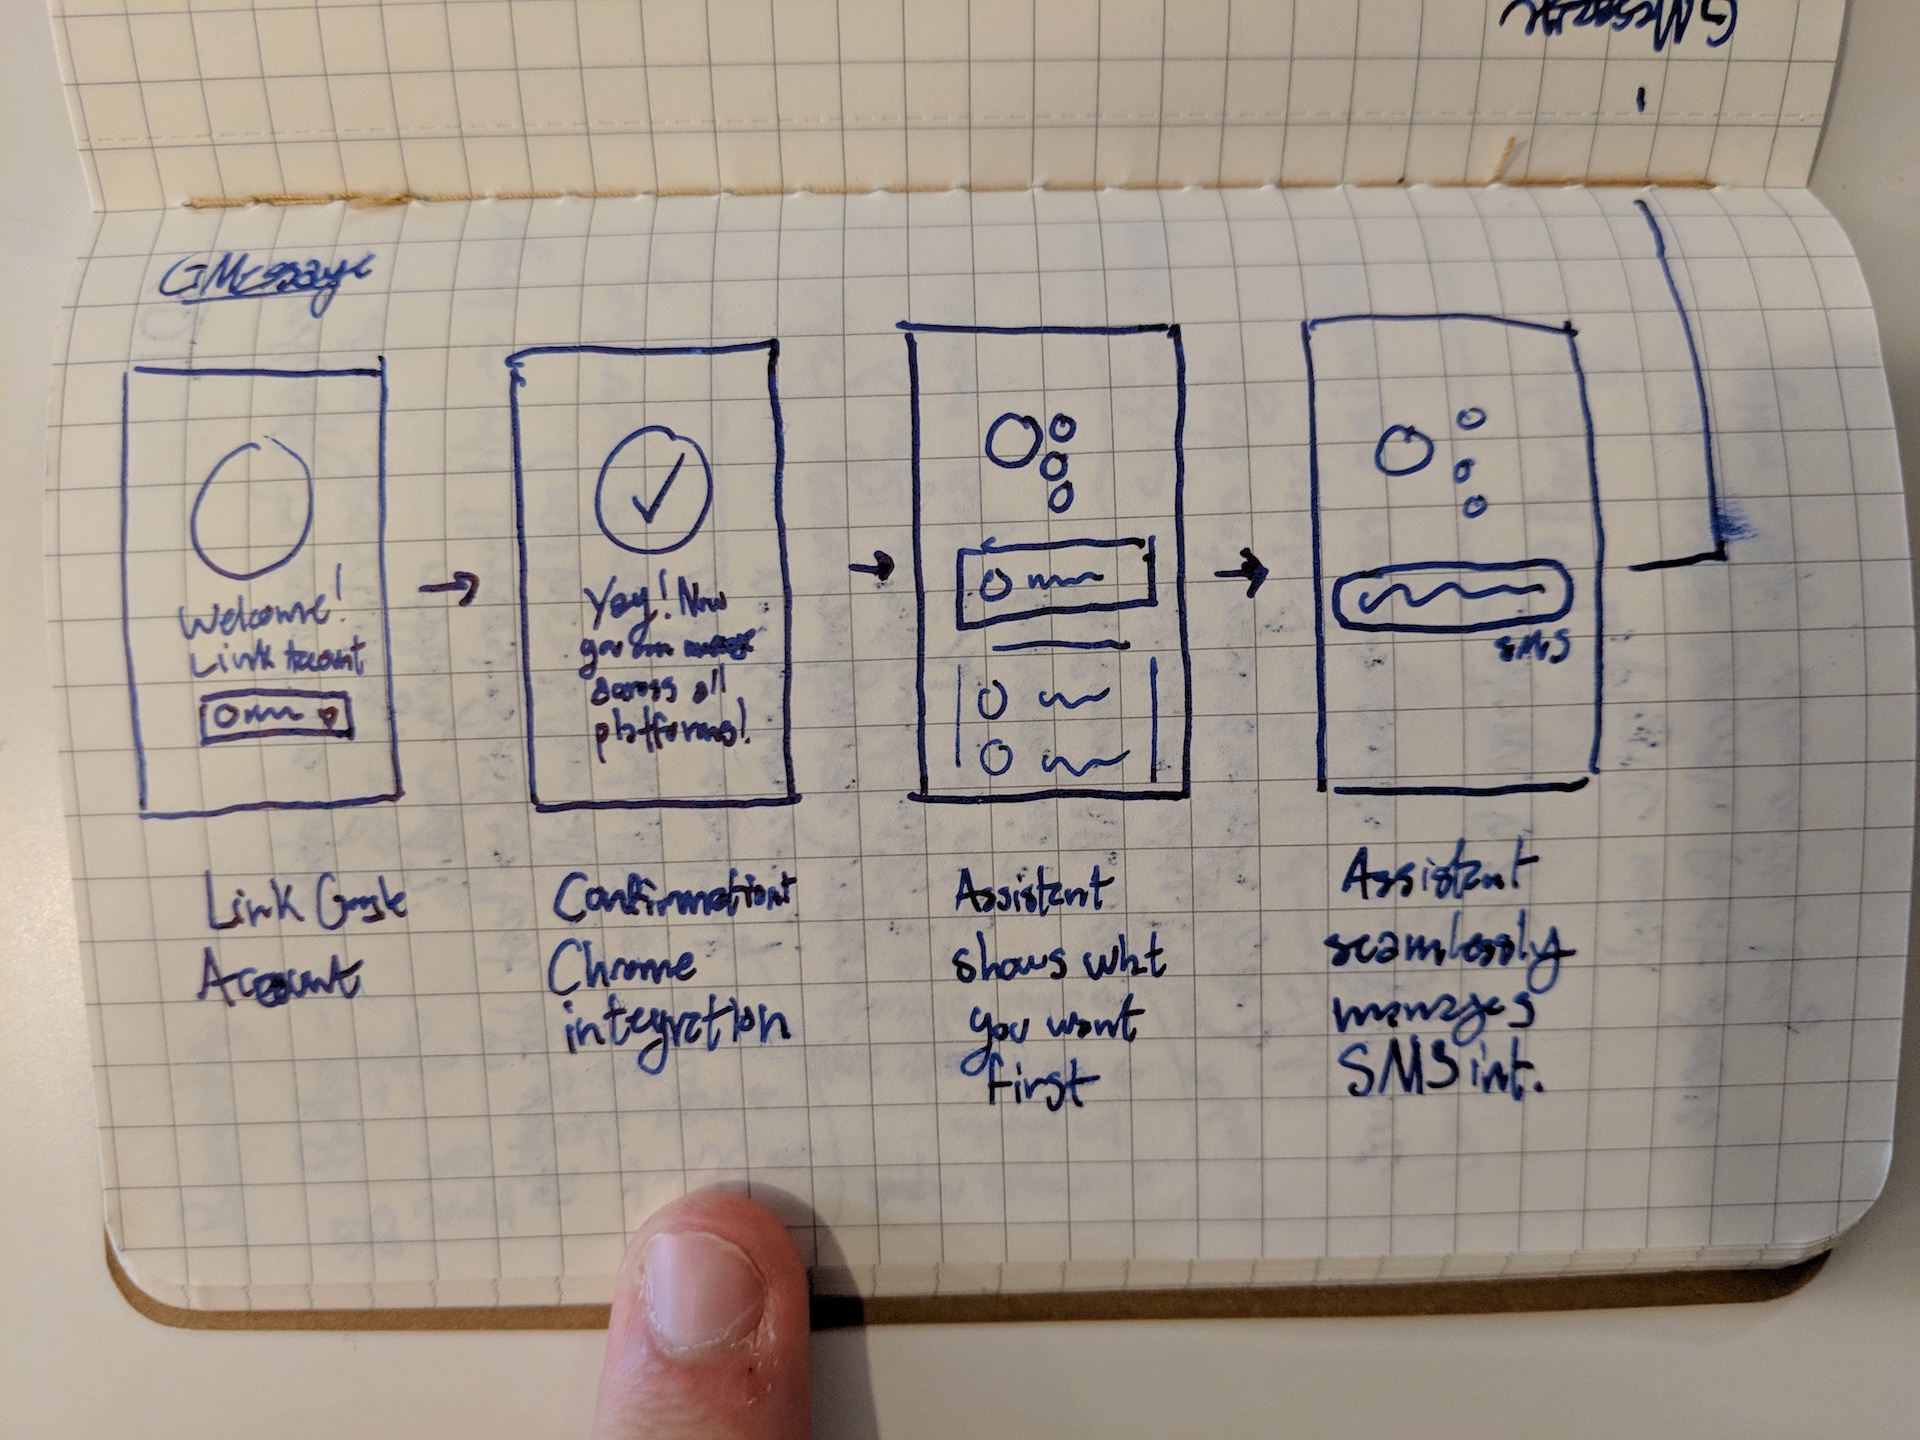 GMessage
GMessage
Welcome!
Link Account
Yay! Now
you can
across all
platforms!
SMS
Link Google
Account
Confirmation
Chrome
integration
Assistant
shows what
you want
first
Assistant
seamlessly
manages
SMS int.